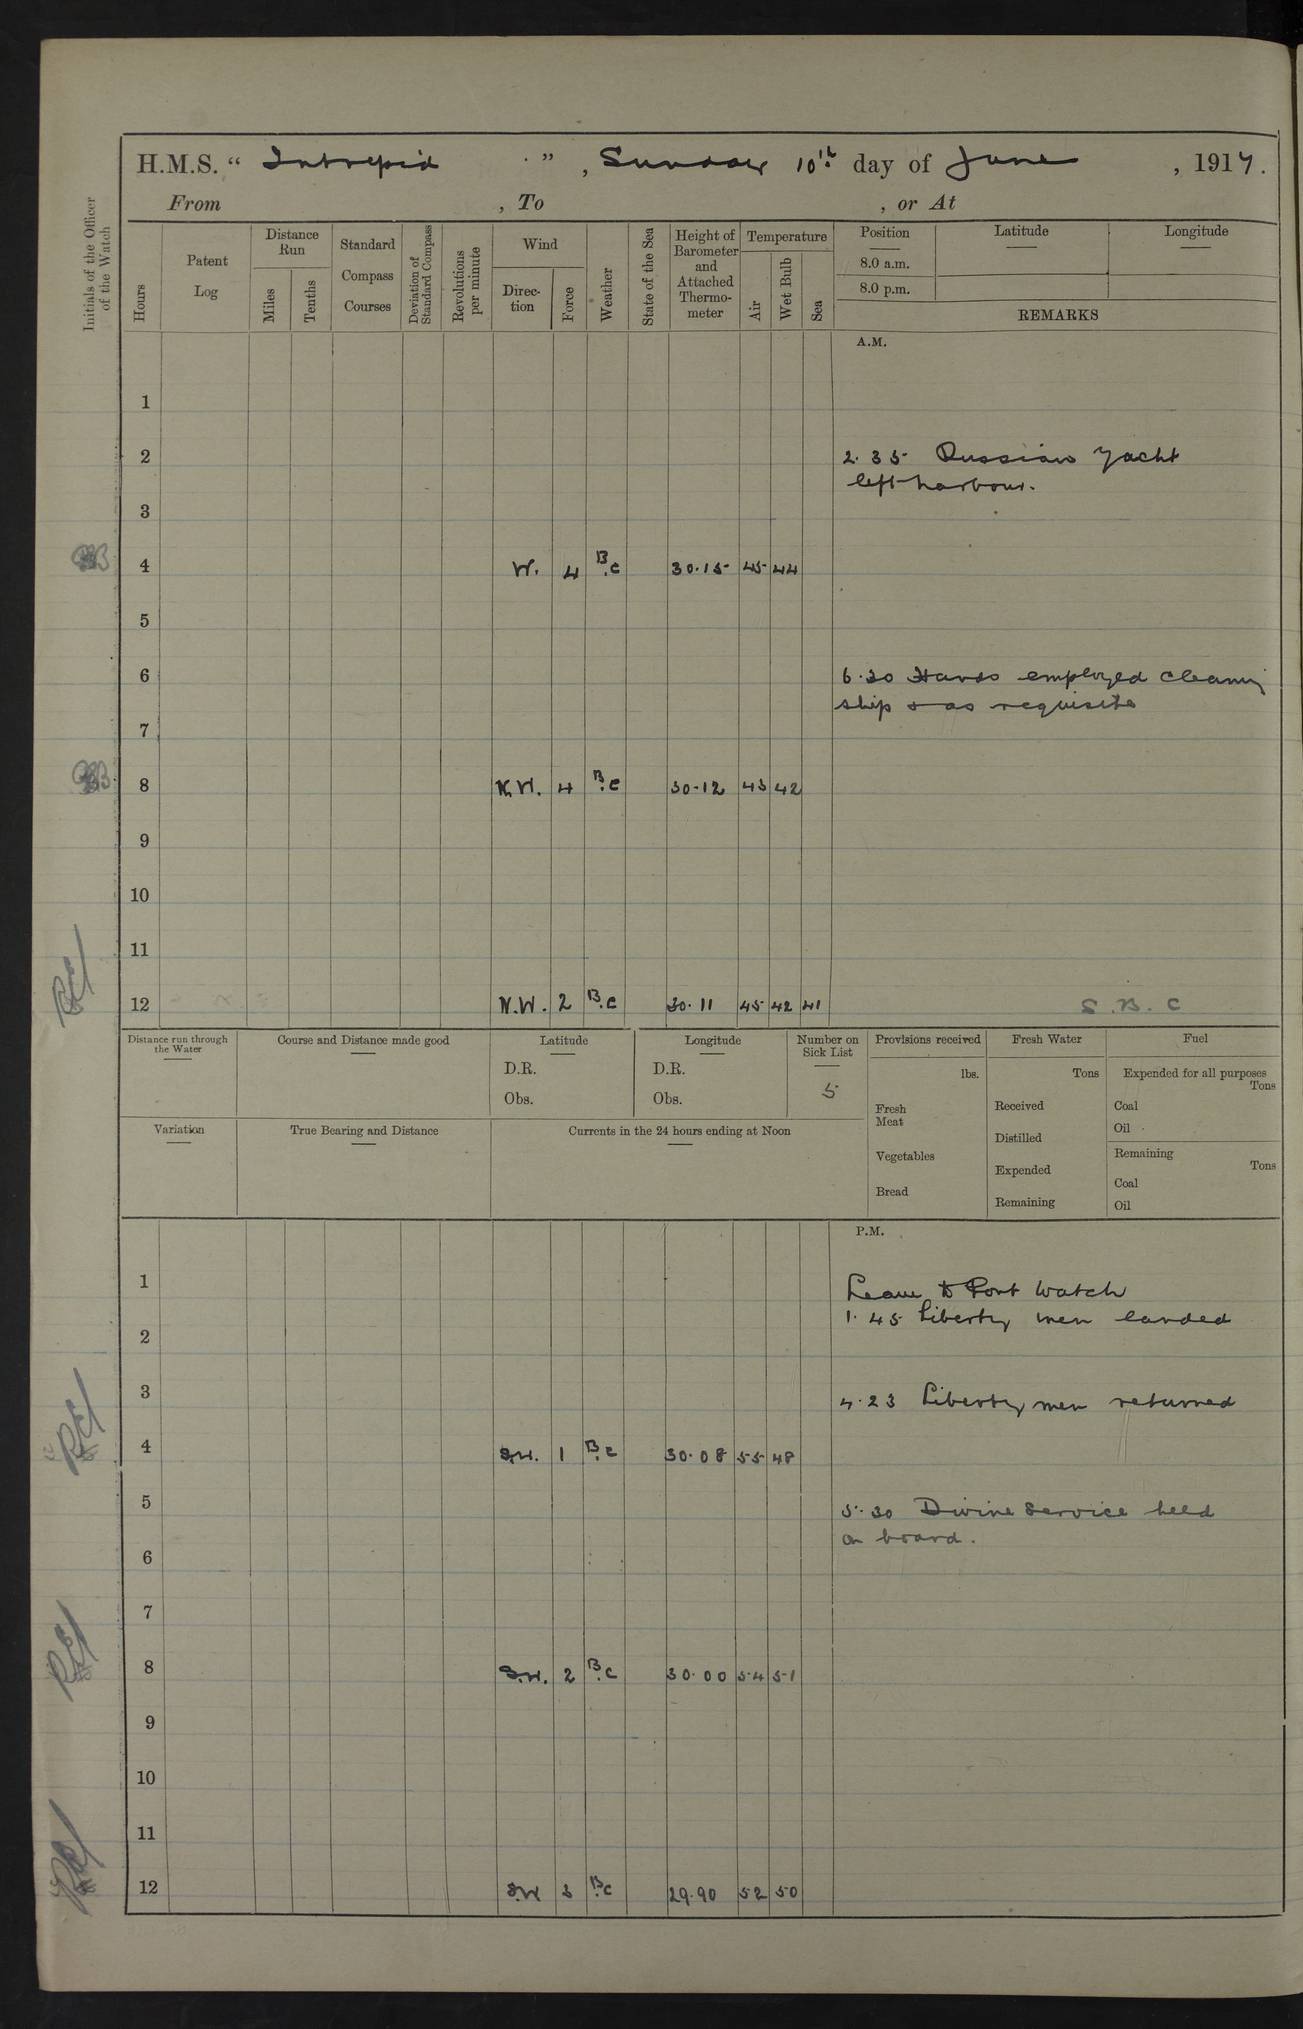 H.M.S. “ Intrepid ” , Sunday 10th day of June , 1917.
From , To , or At
Initials of the Officer of the Watch
Hours
Patent Log
Distance Run
Miles
Tenths
Standard Compass Courses
Deviation of Standard Compass
Revolutions per minute
Wind
Direc-tion
Force
Weather
State of the Sea
Height of Barometer and Attached Thermo-meter
Temperature
Air
Wet Bulb
Sea
Position
8.0 a.m.
8.0 p.m.
Latitude
Longitude
REMARKS
A.M.
1
2 2.35 Russian Yacht
left harbour.
3
4 W. 4 B.C 30.15 45 44
5
6 6.30 Hands employed cleaning
ship & as requisite
7
8 N.W. 4 B.C 30.12 43 42
9
10
11
12 N.W. 2 B.C 30.11 45 42 41 S.B.C
Distance run through the Water
Course and Distance made good
Latitude
D.R.
Obs.
Longitude
D.R.
Obs.
Number on Sick List
5
Provisions received
lbs.
Fresh Meat
Vegetables
Bread
Fresh Water
Tons
Received
Distilled
Expended
Remaining
Fuel
Expended for all purposes
Tons
Coal
Oil
Remaining
Tons
Coal
Oil
Variation
True Bearing and Distance
Currents in the 24 hours ending at Noon
P.M.
1 Leave to Port Watch
1.45 Liberty men landed
2
3 4.23 Liberty men returned
4 S.W. 1 B.C 30.08 55 48
5 5.30 Divine Service held
on board.
6
7
8 S.W. 2 B.C 30.00 54 51
9
10
11
12 S.W 3 B.C 29.90 52 50